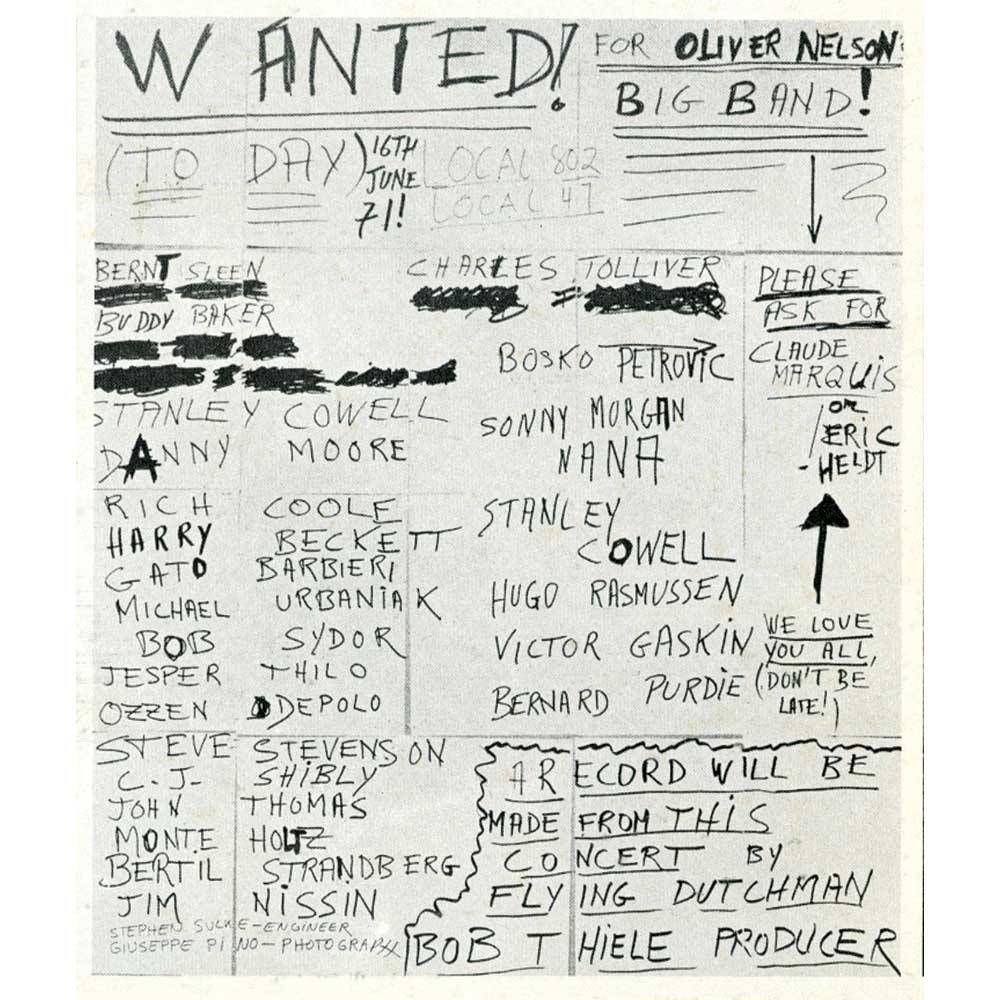 WANTED!
FOR OLIVER NELSON:
BIG BAND!
(TO DAY)
16TH
JUNE
71!
LOCAL 802
LOCAL 47
BERNT SLEEN
BUDDY BAKER
STANLEY COWELL
DANNY MOORE
RICH COOLE
HARRY BECKETT
GATO BARBIERI
MICHAEL URBANIAK
BOB SYDOR
JESPER THILO
OZZEN DEPOLO
STEVE STEVENSON
C.J. SHIBLY
JOHN THOMAS
MONTE HOLTZ
BERTIL STRANDBERG
JIM NISSIN
STEPHEN SULKE-ENGINEER
GIUSEPPE PINO-PHOTOGRAPH
CHARLES TOLLIVER
BOSKO PETROVIC
SONNY MORGAN
NANA
STANLEY
COWELL
HUGO RASMUSSEN
VICTOR GASKIN
BERNARD PURDIE
PLEASE
ASK FOR
CLAUDE
MARQUIS
OR
ERIC
-HELDT
WE LOVE
YOU ALL,
(DON'T BE
LATE!)
A RECORD WILL BE
MADE FROM THIS
CONCERT BY
FLYING DUTCHMAN
BOB THIELE PRODUCER